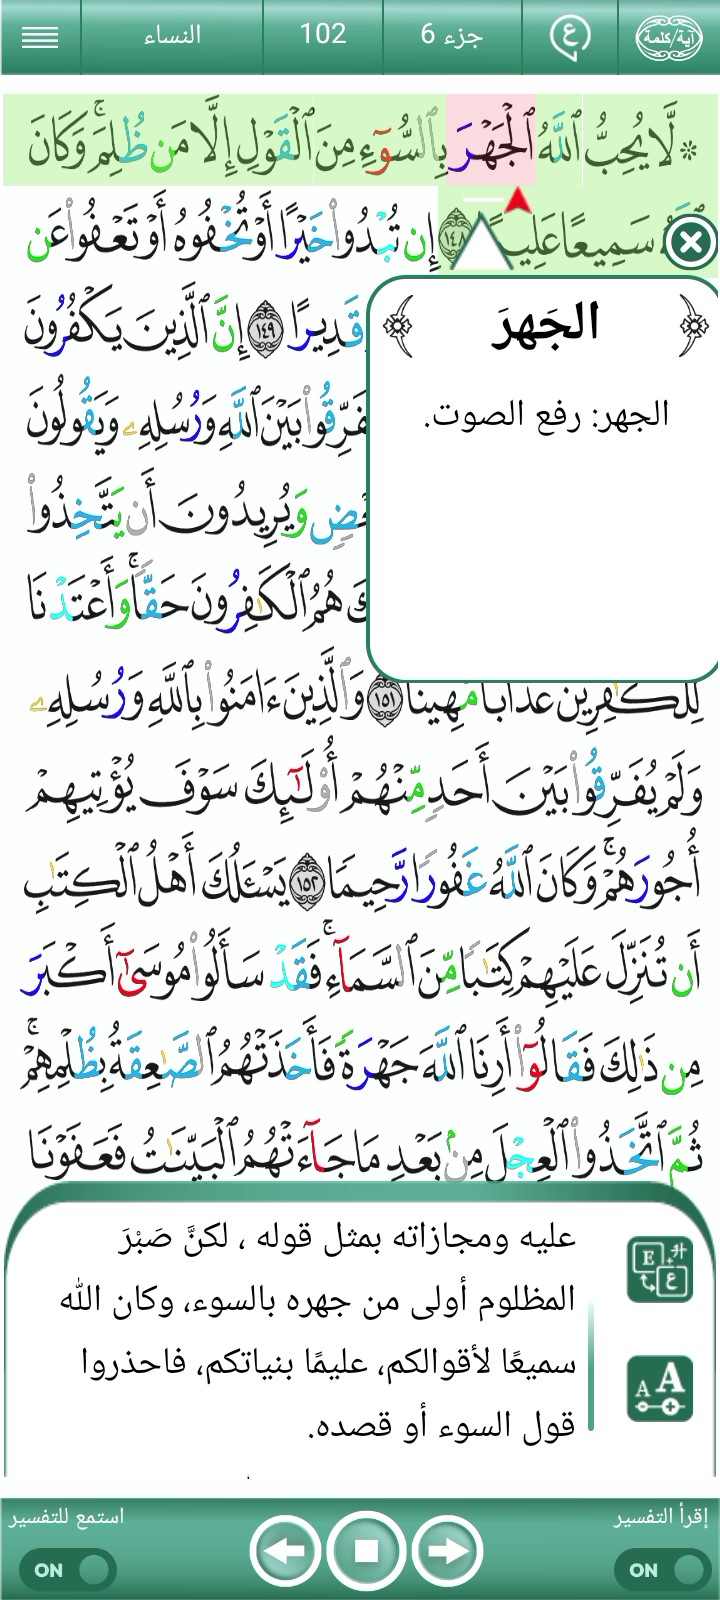 آية/كلمة
ع
جزء 6
102
النساء
۞ لَّا يُحِبُّ ٱللَّهُ ٱلْجَهْرَ بِٱلسُّوٓءِ مِنَ ٱلْقَوْلِ إِلَّا مَن ظُلِمَۚ وَكَانَ
سَمِيعًا عَلِيـ ١٤٨ إِن تُبْدُوا۟ خَيْرًا أَوْ تُخْفُوهُ أَوْ تَعْفُوا۟ عَن
قَدِيرًا ١٤٩ إِنَّ ٱلَّذِينَ يَكْفُرُونَ
يُفَرِّقُوا۟ بَيْنَ ٱللَّهِ وَرُسُلِهِۦ وَيَقُولُونَ
وَيُرِيدُونَ أَن يَتَّخِذُوا۟
هُمُ ٱلْكَـٰفِرُونَ حَقًّاۚ وَأَعْتَدْنَا
الجَهرَ
الجهر: رفع الصوت.
لِلْكَـٰفِرِينَ عَذَابًا مُّهِينًا ١٥١ وَٱلَّذِينَ ءَامَنُوا۟ بِٱللَّهِ وَرُسُلِهِۦ
وَلَمْ يُفَرِّقُوا۟ بَيْنَ أَحَدٍ مِّنْهُمْ أُو۟لَـٰٓئِكَ سَوْفَ يُؤْتِيهِمْ
أُجُورَهُمْۚ وَكَانَ ٱللَّهُ غَفُورًا رَّحِيمًا ١٥٢ يَسْـَٔلُكَ أَهْلُ ٱلْكِتَـٰبِ
أَن تُنَزِّلَ عَلَيْهِمْ كِتَـٰبًا مِّنَ ٱلسَّمَآءِۚ فَقَدْ سَأَلُوا۟ مُوسَىٰٓ أَكْبَرَ
مِن ذَٰلِكَ فَقَالُوٓا۟ أَرِنَا ٱللَّهَ جَهْرَةً فَأَخَذَتْهُمُ ٱلصَّـٰعِقَةُ بِظُلْمِهِمْۚ
ثُمَّ ٱتَّخَذُوا۟ ٱلْعِجْلَ مِنۢ بَعْدِ مَا جَآءَتْهُمُ ٱلْبَيِّنَـٰتُ فَعَفَوْنَا
عليه ومجازاته بمثل قوله ، لكنَّ صَبْرَ
المظلوم أولى من جهره بالسوء، وكان الله
سميعًا لأقوالكم، عليمًا بنياتكم، فاحذروا
قول السوء أو قصده.
إقرأ التفسير
استمع للتفسير
ON
ON